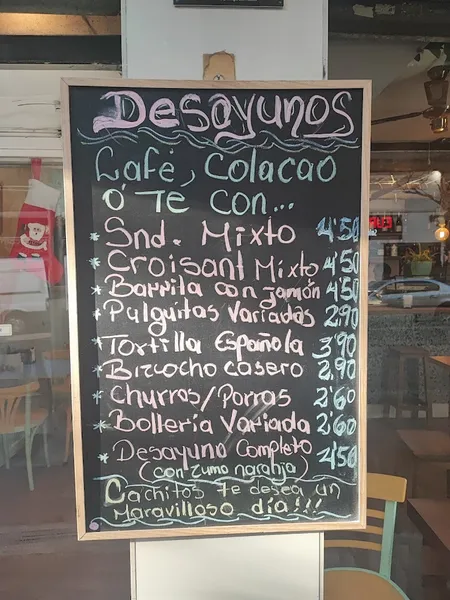 Desayunos
Café, Colacao
ó Te con...
* Snd. Mixto 4'50
* Croisant Mixto 4'50
* Barrita con jamón 4'50
* Pulguitas Variadas 2,90
* Tortilla Española 3,90
* Bizcocho casero 2,90
* Churros/Porras 2'60
* Bollería Variada 2'60
* Desayuno Completo 4,50
(con zumo naranja)
Cachitos te desea un
Maravilloso día!!!